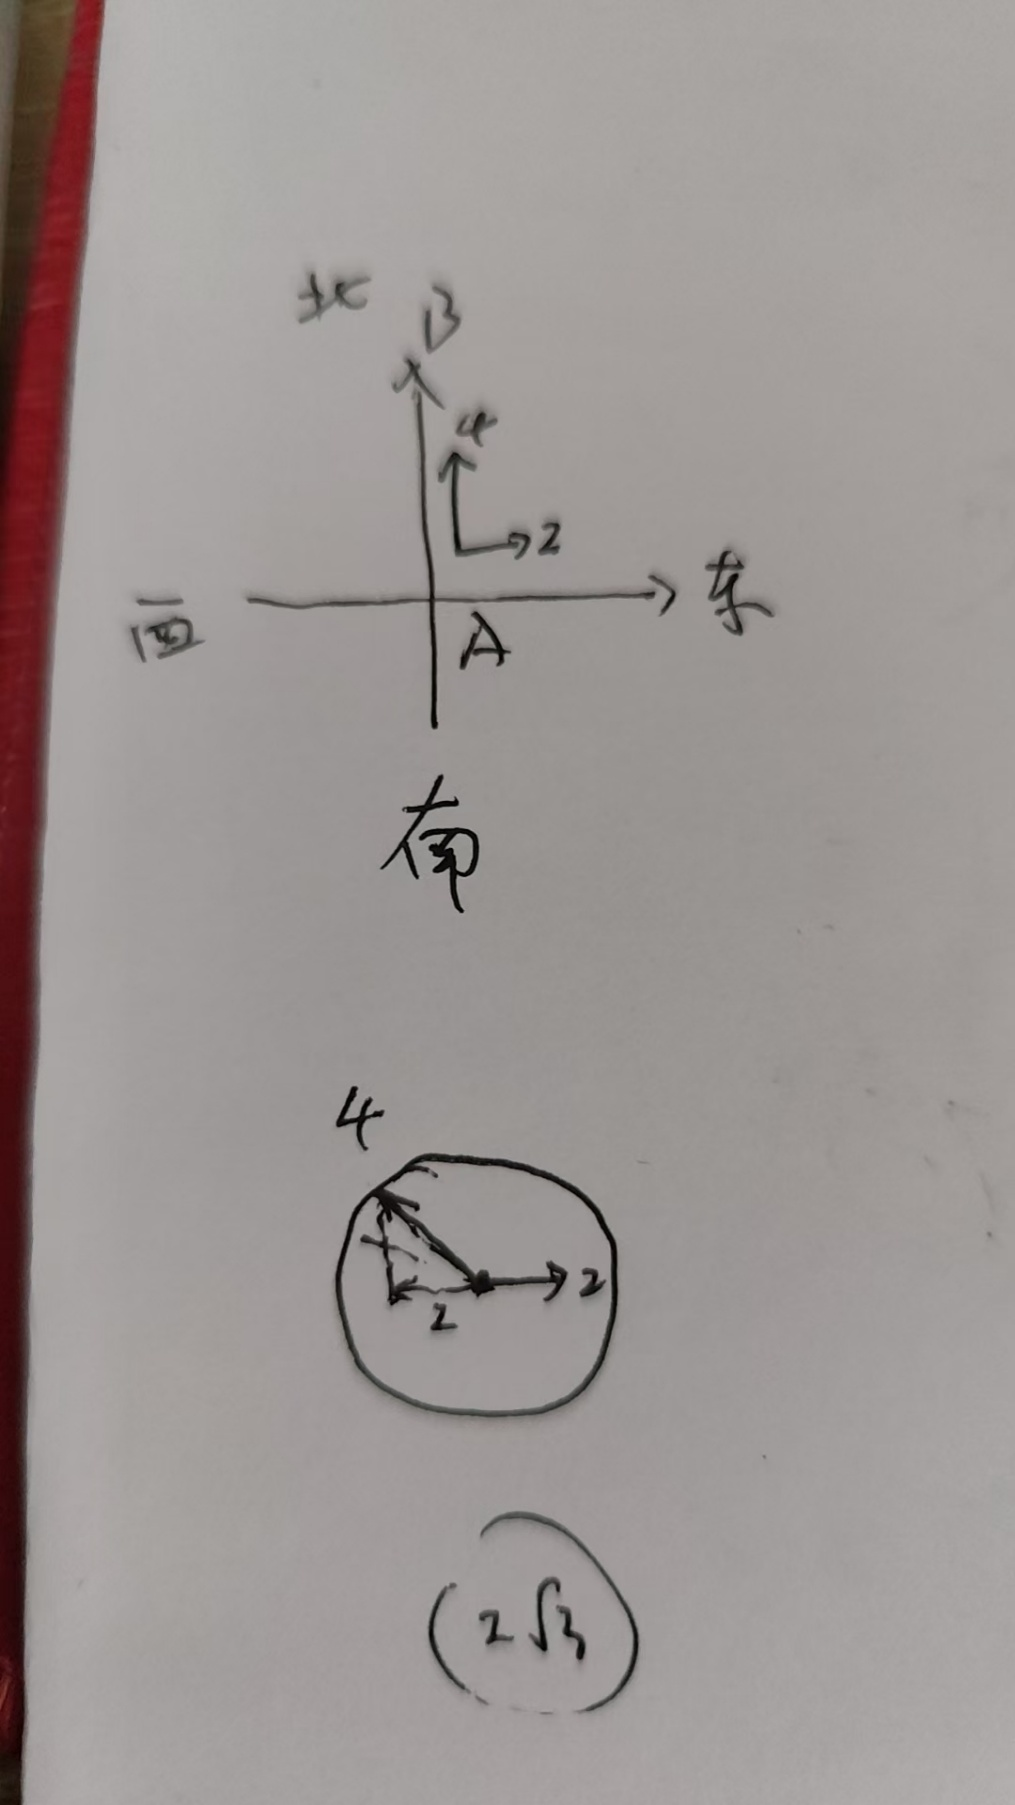 北 B
4
2
东
西
A
南
4
2
2
2√3